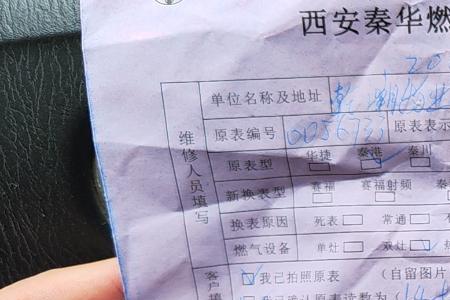 西安秦华燃
单位名称及地址
原表编号 0056733 原表表示
原表型 华捷 秦港 秦川
新换表型 赛福 赛福射频 秦
换表原因 死表 常通
燃气设备 单灶 双灶
维修人员填写
客户填
我已拍照原表 (自留图片
我已确认原表读数为